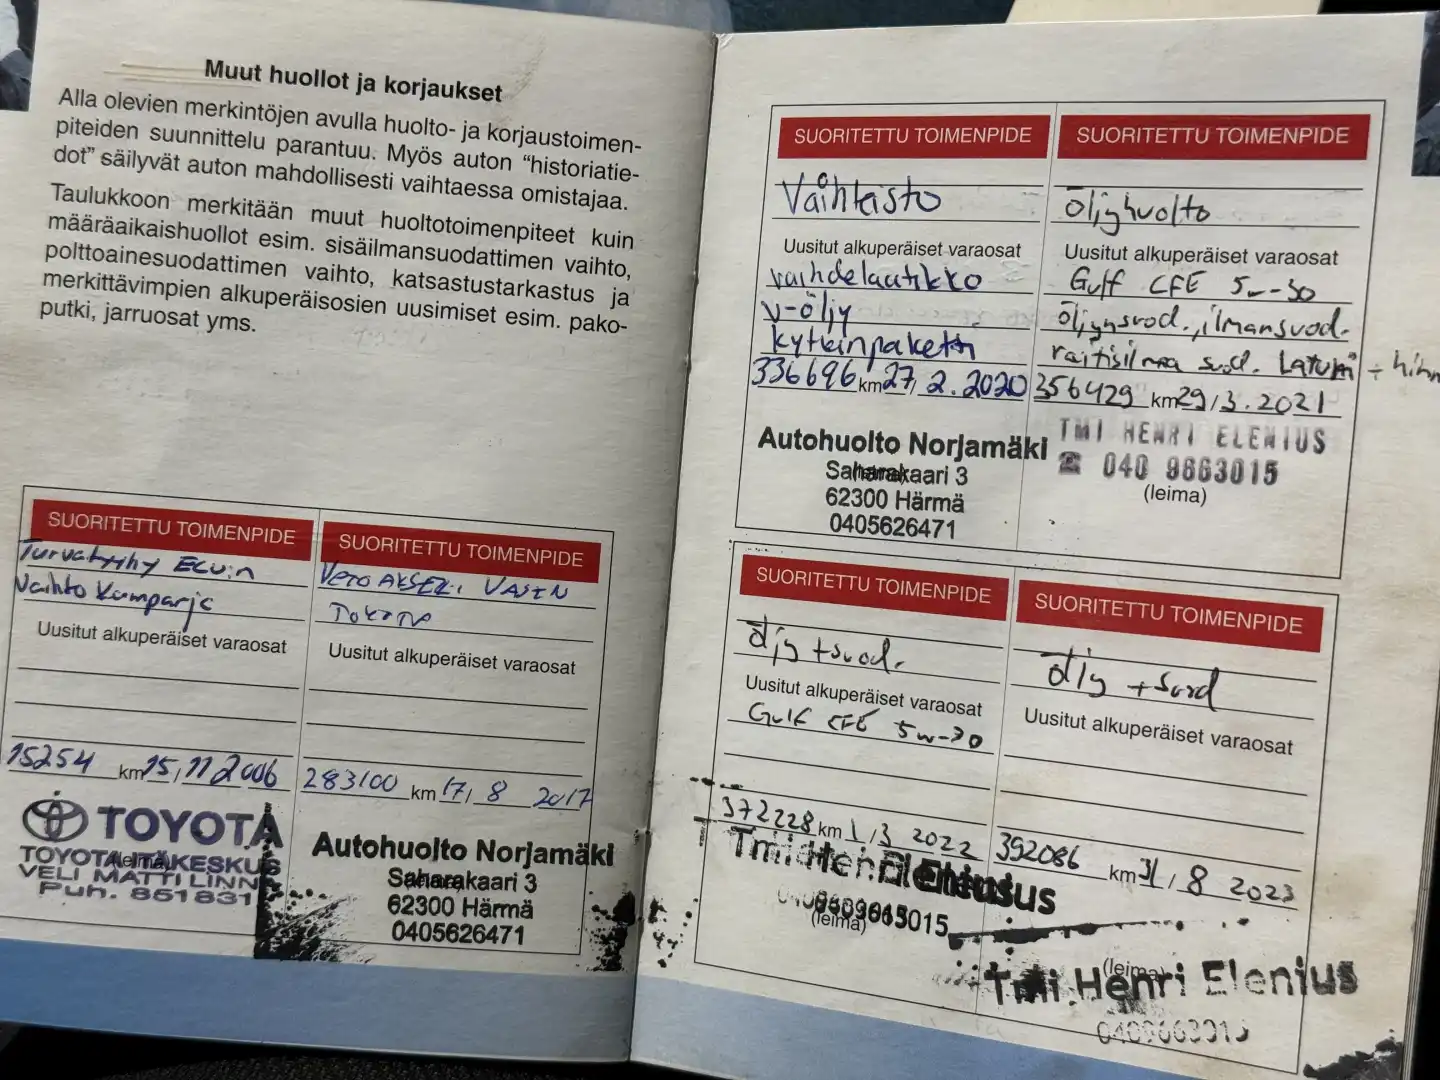 Muut huollot ja korjaukset
Alla olevien merkintöjen avulla huolto- ja korjaustoimen-
piteiden suunnittelu parantuu. Myös auton “historiatie-
dot” säilyvät auton mahdollisesti vaihtaessa omistajaa.
Taulukkoon merkitään muut huoltotoimenpiteet kuin
määräaikaishuollot esim. sisäilmansuodattimen vaihto,
polttoainesuodattimen vaihto, katsastustarkastus ja
merkittävimpien alkuperäisosien uusimiset esim. pako-
putki, jarruosat yms.
SUORITETTU TOIMENPIDE
Turvatyyny ECU:n
Vaihto Kampanja
Uusitut alkuperäiset varaosat
15254 km 15, 11 2006
TOYOTA
TOYOTAMÄKESKUS
VELI MATTI LINN
Puh. 851831
SUORITETTU TOIMENPIDE
VETOAKSELI VASEN
Uusitut alkuperäiset varaosat
283100 km 17, 8 2017
Autohuolto Norjamäki
Saharakaari 3
62300 Härmä
0405626471
SUORITETTU TOIMENPIDE
Vaihteisto
Uusitut alkuperäiset varaosat
vaihdelaatikko
v-öljy
kytkinpaketti
336696 km 27, 2. 2020
Autohuolto Norjamäki
Saharakaari 3
62300 Härmä
0405626471
SUORITETTU TOIMENPIDE
öljyhuolto
Uusitut alkuperäiset varaosat
Gulf CFE 5w-30
öljynsuod., ilmansuod.
raitisilma suod. Laturi + hihn
356429 km 29, 3. 2021
TMI HENRI ELENIUS
☎ 040 9663015
(leima)
SUORITETTU TOIMENPIDE
öljy + suod.
Uusitut alkuperäiset varaosat
Gulf CFE 5w-30
372228 km 1, 3 2022
Tmi Henri Elenius
(leima)
SUORITETTU TOIMENPIDE
öljy + suod
Uusitut alkuperäiset varaosat
392086 km 31, 8 2023
(leima)
Tmi Henri Elenius
0409663015